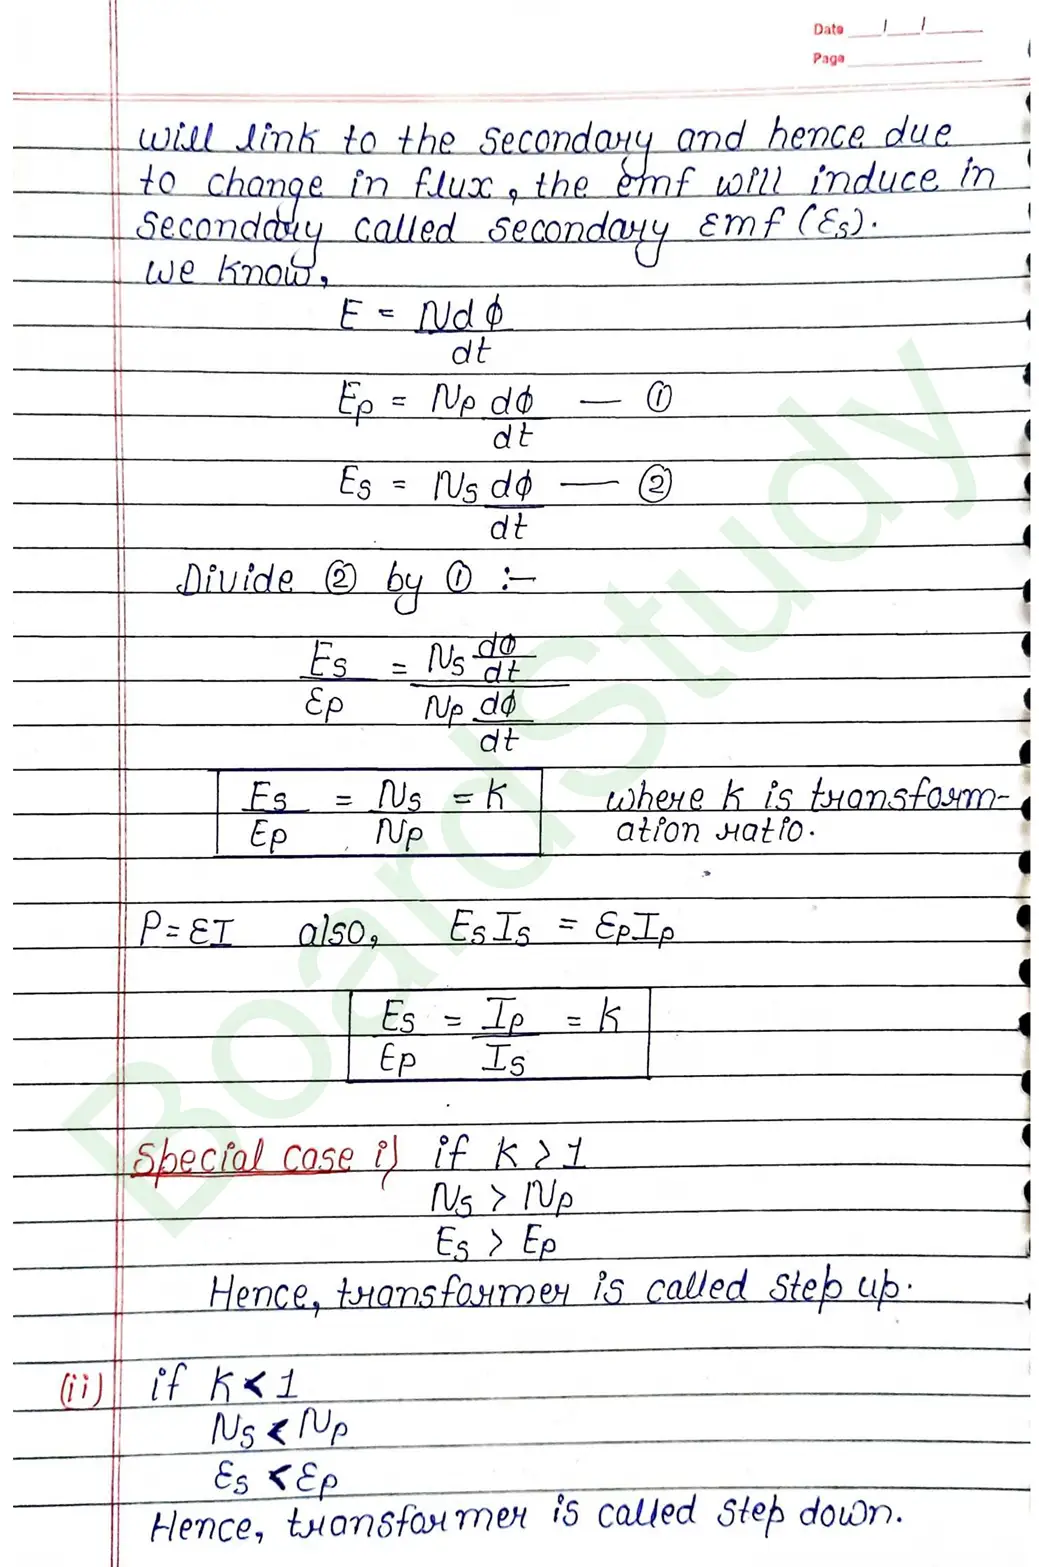 Date __/__/____
Page ________
will link to the secondary and hence due
to change in flux, the emf will induce in
secondary called secondary Emf (Es).
we know,
E = Ndϕ
dt
Ep = Np dϕ — ①
dt
Es = Ns dϕ — ②
dt
Divide ② by ① :-
Es = Ns dϕ/dt
Ep Np dϕ
dt
Es = Ns = K where K is transform-
Ep Np ation ratio.
P = EI also, Es Is = Ep Ip
Es = Ip = K
Ep Is
special case i) if K > 1
Ns > Np
Es > Ep
Hence, transformer is called step up.
(ii) if K < 1
Ns < Np
Es < Ep
Hence, transformer is called step down.
BoardStudy